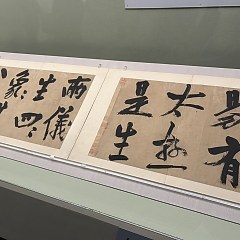 易有
太極
是生
兩儀
生四
象